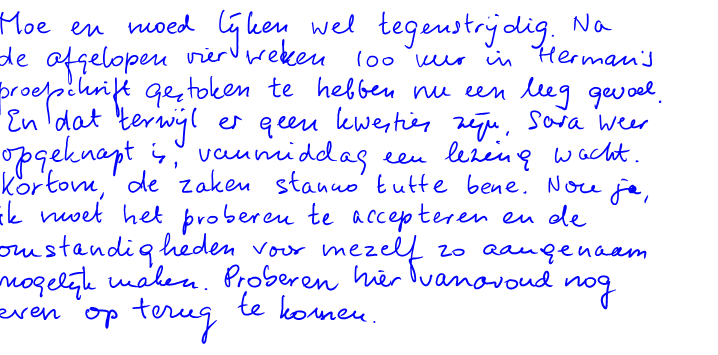 Moe en moed lijken wel tegenstrijdig. Na
de afgelopen vier weken 100 uur in Herman's
proefschrift gestoken te hebben nu een leeg gevoel.
En dat terwijl er geen kwesties zijn, Sara weer
opgeknapt is, vanmiddag een lezing wacht.
Kortom, de zaken stanno tutte bene. Nou ja,
ik moet het proberen te accepteren en de
omstandigheden voor mezelf zo aangenaam
mogelijk maken. Proberen hier vanavond nog
even op terug te komen.